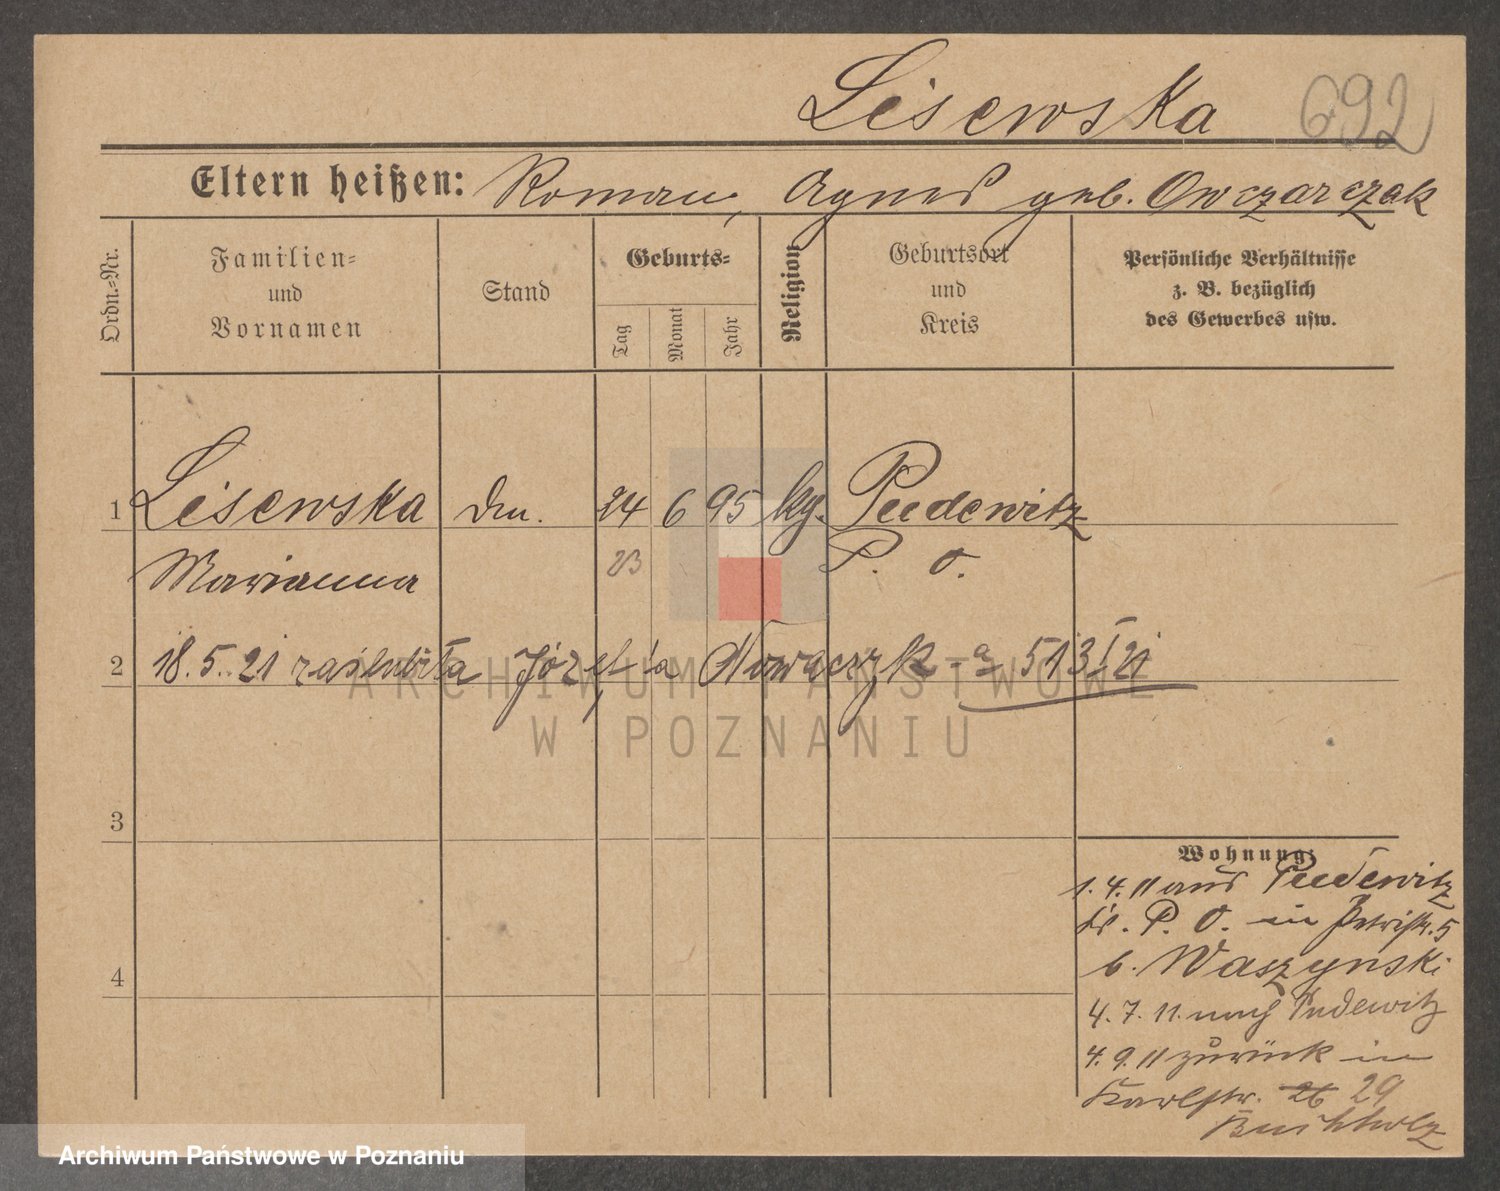 Lisewska 692
Eltern heißen: Roman, Agnes geb. Owczarczak
Ordn.-Nr.
Familien-
und
Vornamen
Stand
Geburts-
Tag
Monat
Jahr
Religion
Geburtsort
und
Kreis
Persönliche Verhältnisse
z. B. bezüglich
des Gewerbes usw.
1 Lisewska 24 6 95 kg. Pudewitz
Marianna 23 P. O.
2 18.5.21 zaślubiła Józefa Nowaczyk - a 513/21
3
4
Wohnung:
1. 4. 11 aus Pudewitz
Kr. P. O. in Petristr. 5
b. Waszynski
4. 7. 11. nach Pudewitz
4. 9. 11 zurück in
Karlstr. 26 29
Buchholz
ARCHIWUM PAŃSTWOWE
W POZNANIU
Archiwum Państwowe w Poznaniu